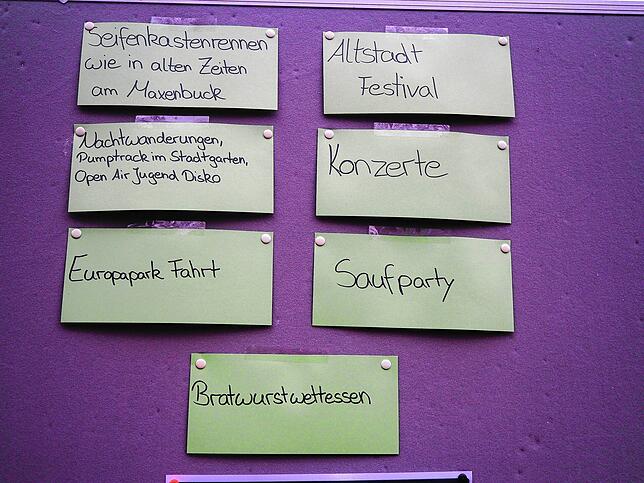 Seifenkastenrennen
wie in alten Zeiten
am Maxenbuck
Altstadt
Festival
Nachtwanderungen,
Pumptrack im Stadtgarten,
Open Air Jugend Disko
Konzerte
Europapark Fahrt
Saufparty
Bratwurstwettessen